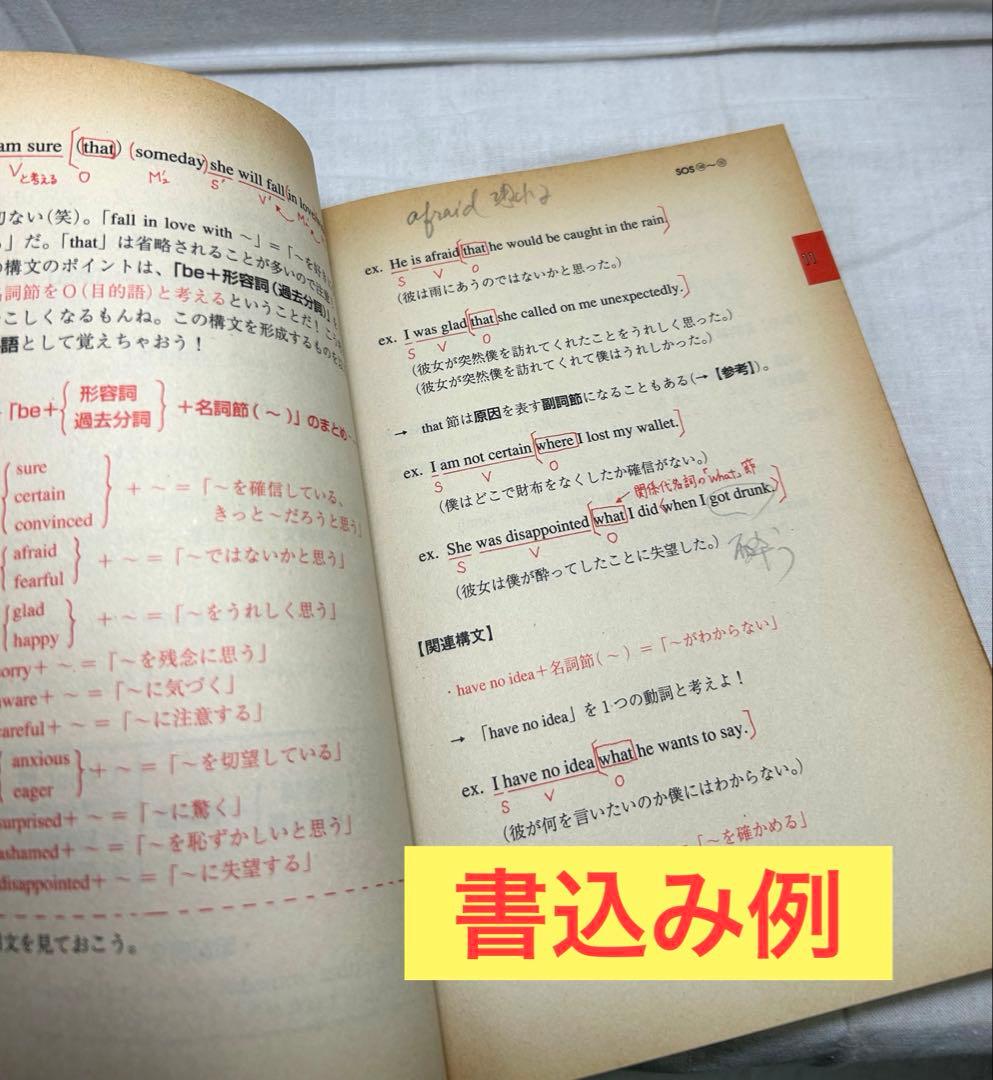 am sure (that) (someday) she will fall in love
V と考える O M₂' S' V' M₂'
ない(笑)。「fall in love with ~」=「~を好き
」だ。「that」は省略されることが多いので注意
構文のポイントは、「be+形容詞(過去分詞)」
名詞節をO(目的語)と考えるということだ!こ
こしくなるもんね。この構文を形成するものを
語として覚えちゃおう!
「be+{形容詞
過去分詞}+名詞節(~)」のまとめ
sure
certain + ~ =「~を確信している、
convinced きっと~だろうと思う」
afraid
fearful + ~ =「~ではないかと思う」
glad
happy + ~ =「~をうれしく思う」
orry+ ~ =「~を残念に思う」
ware+ ~ =「~に気づく」
areful+ ~ =「~に注意する」
anxious
eager + ~ =「~を切望している」
urprised+ ~ =「~に驚く」
ashamed+ ~ =「~を恥ずかしいと思う」
disappointed+ ~ =「~に失望する」
文を見ておこう。
SOS
11
afraid
ex. He is afraid that he would be caught in the rain.
S V O
(彼は雨にあうのではないかと思った。)
ex. I was glad that she called on me unexpectedly.
S V O
(彼女が突然僕を訪れてくれたことをうれしく思った。)
(彼女が突然僕を訪れてくれて僕はうれしかった。)
→ that 節は原因を表す副詞節になることもある(→【参考】)。
ex. I am not certain where I lost my wallet.
S V O
(僕はどこで財布をなくしたか確信がない。)
関係代名詞の「what」節
ex. She was disappointed what I did when I got drunk.
S V O
(彼女は僕が酔ってしたことに失望した。)
酔う
【関連構文】
・have no idea+名詞節(~)=「~がわからない」
→ 「have no idea」を1つの動詞と考えよ!
ex. I have no idea what he wants to say.
S V O
(彼が何を言いたいのか僕にはわからない。)
「~を確かめる」
書込み例